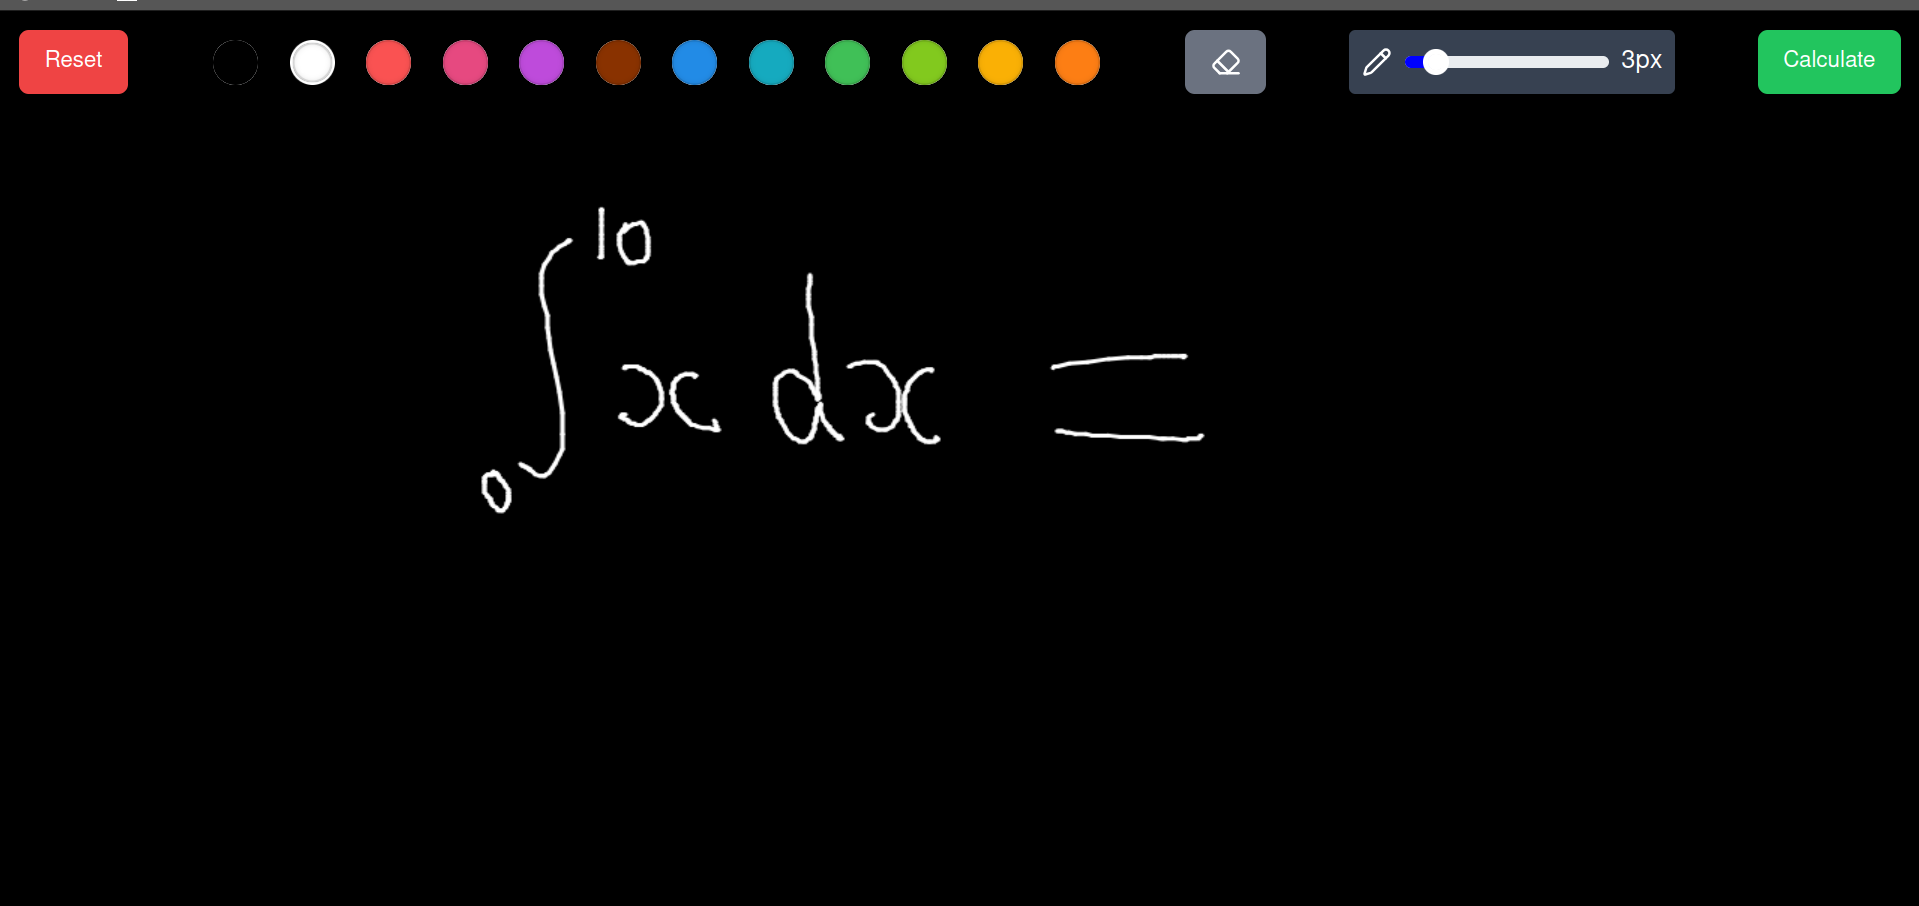 Reset 3px Calculate
∫₀¹⁰ x dx =